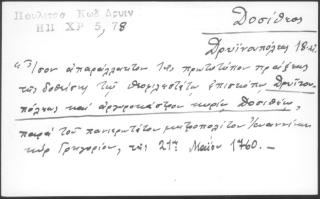 Πουλίτσα Κωδ Δρυϊν
ΗΠ ΧΡ 5, 78
Δοσίθεος
Δρυϊνουπόλεως 18 αἰ.
"Ἴσον ἀπαράλλακτον τῆς πρωτοτύπου πράξεως
τῆς ἐκδόσεως τῷ θεοφιλεστάτῳ ἐπισκόπῳ Δρυϊνου-
πόλεως καὶ Ἀργυροκάστρου κυρίῳ Δοσιθέῳ,
παρὰ τοῦ πανιερωτάτου μητροπολίτου Ἰωαννίνων
κὺρ Γρηγορίου, τῆς 21ης Μαΐου 1760. —